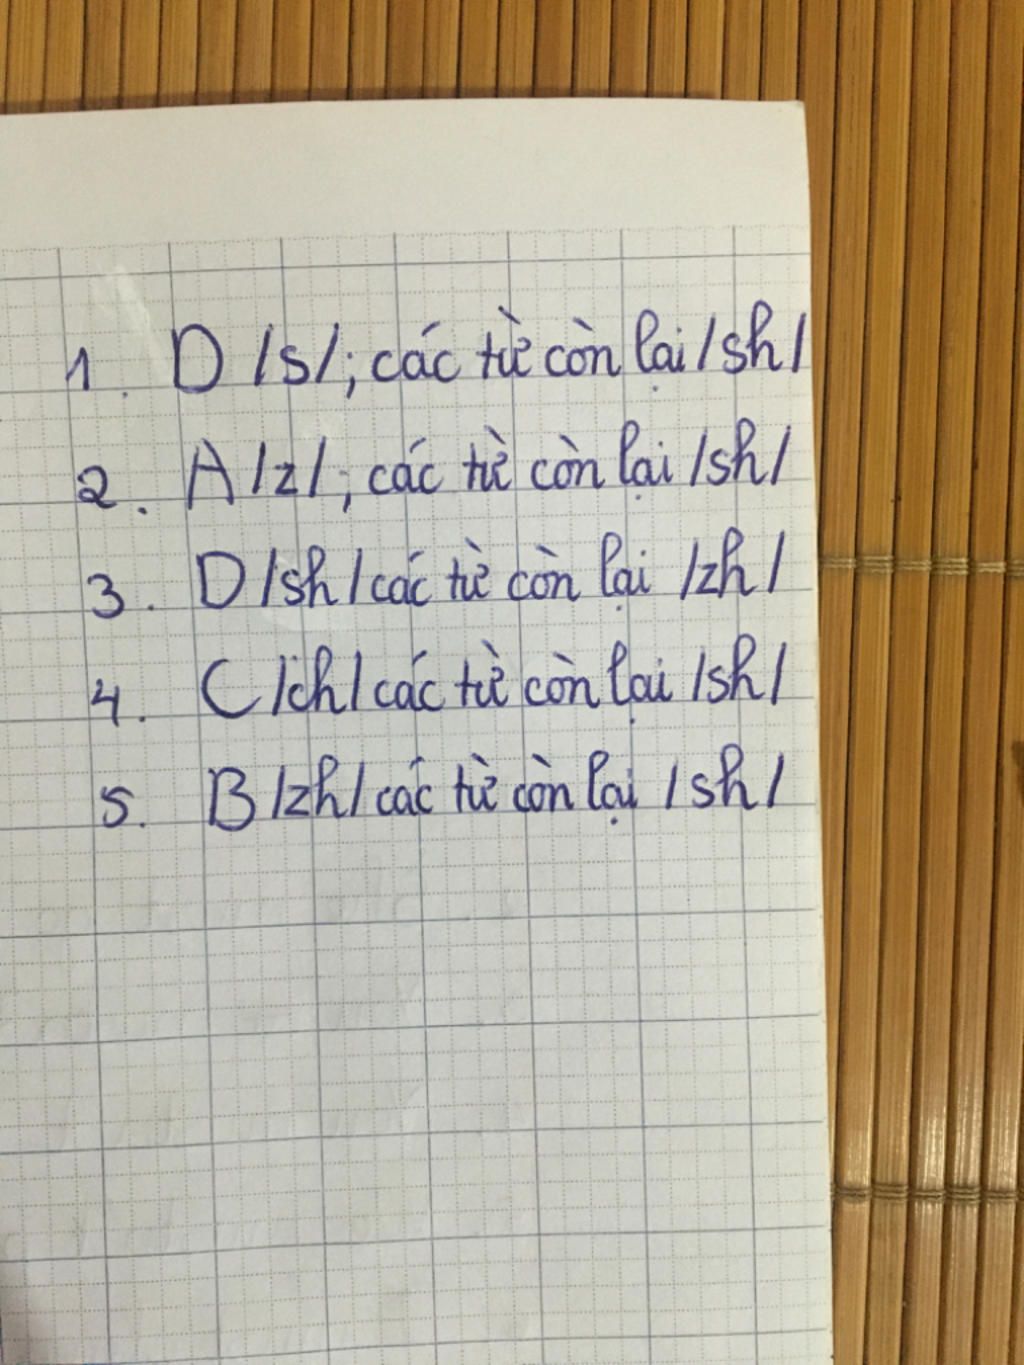 1. D /s/; các từ còn lại /sh/
2. A /z/; các từ còn lại /sh/
3. D /sh/ các từ còn lại /zh/
4. C /ch/ các từ còn lại /sh/
5. B /zh/ các từ còn lại /sh/